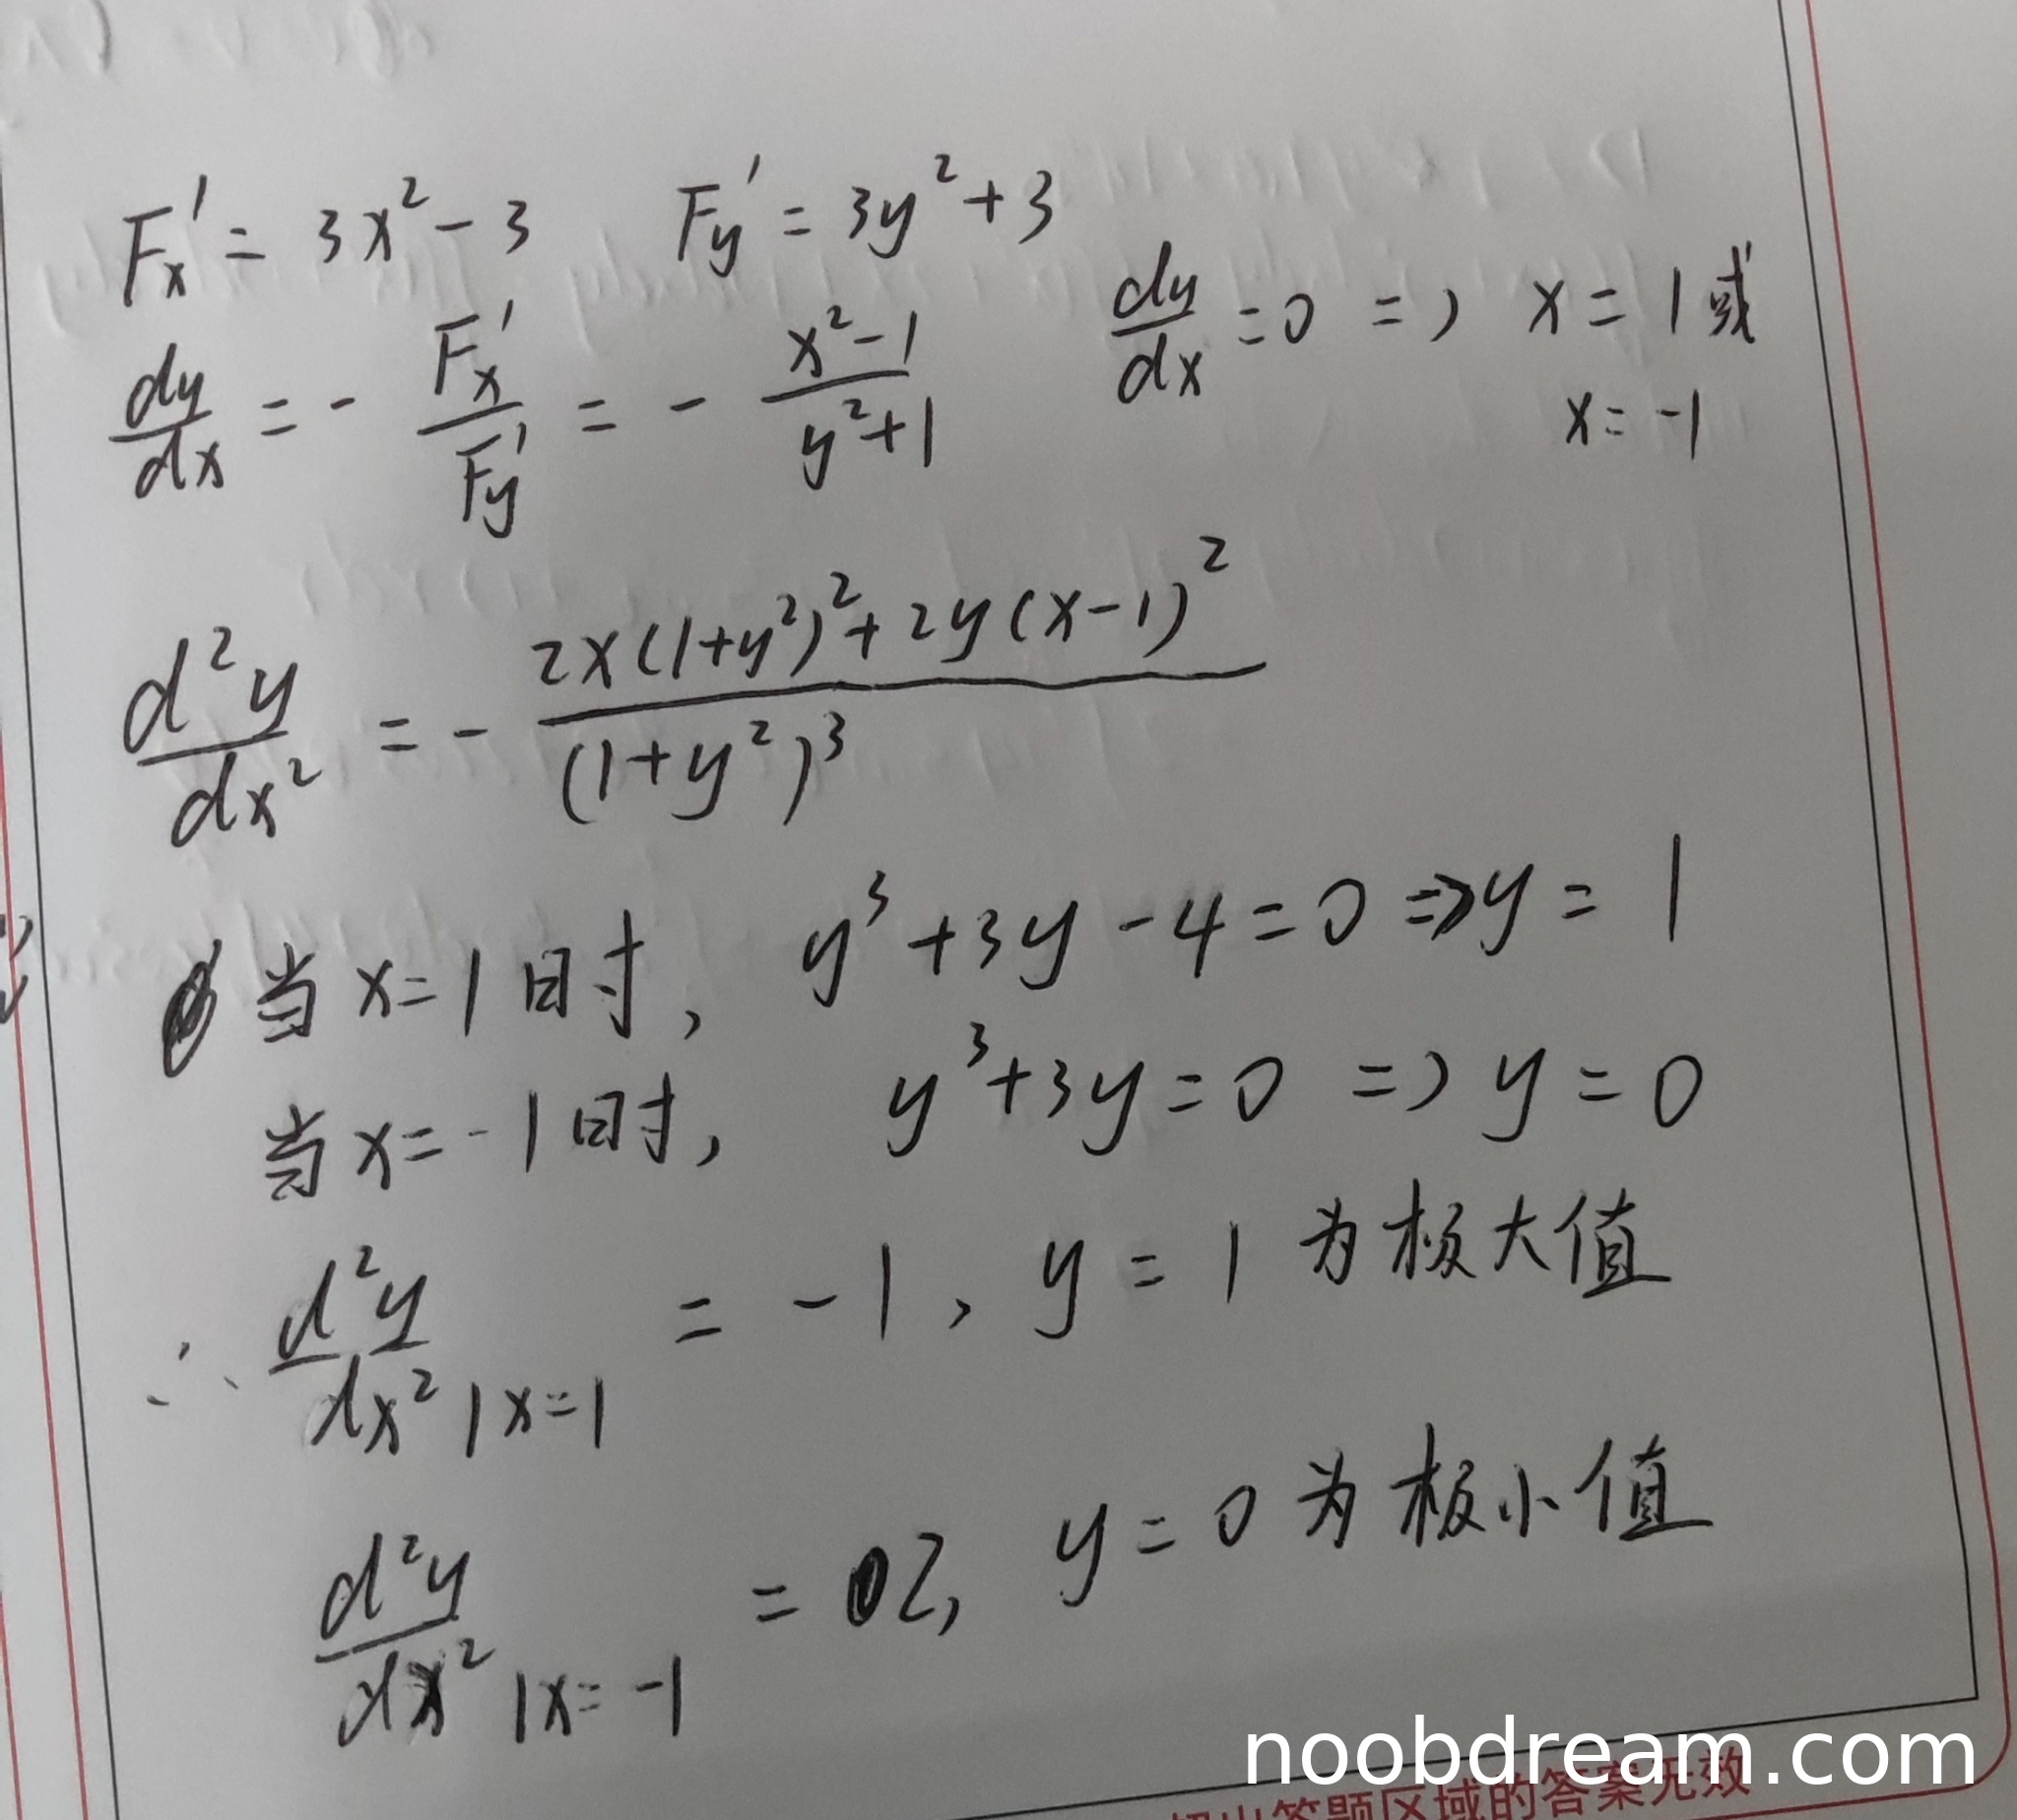 Fx' = 3x² - 3 Fy' = 3y² + 3
dy/dx = - Fx'/Fy' = - (x²-1)/(y²+1) dy/dx = 0 => x = 1 或
x = -1
d²y/dx² = - (2x(1+y²)² + 2y(x-1)²)/(1+y²)³
当 x=1 时, y³+3y-4=0 => y = 1
当 x=-1 时, y³+3y=0 => y = 0
∴ d²y/dx² |x=1 = -1, y = 1 为极大值
d²y/dx² |x=-1 = 2, y = 0 为极小值
noobdream.com
出答题区域的答案无效